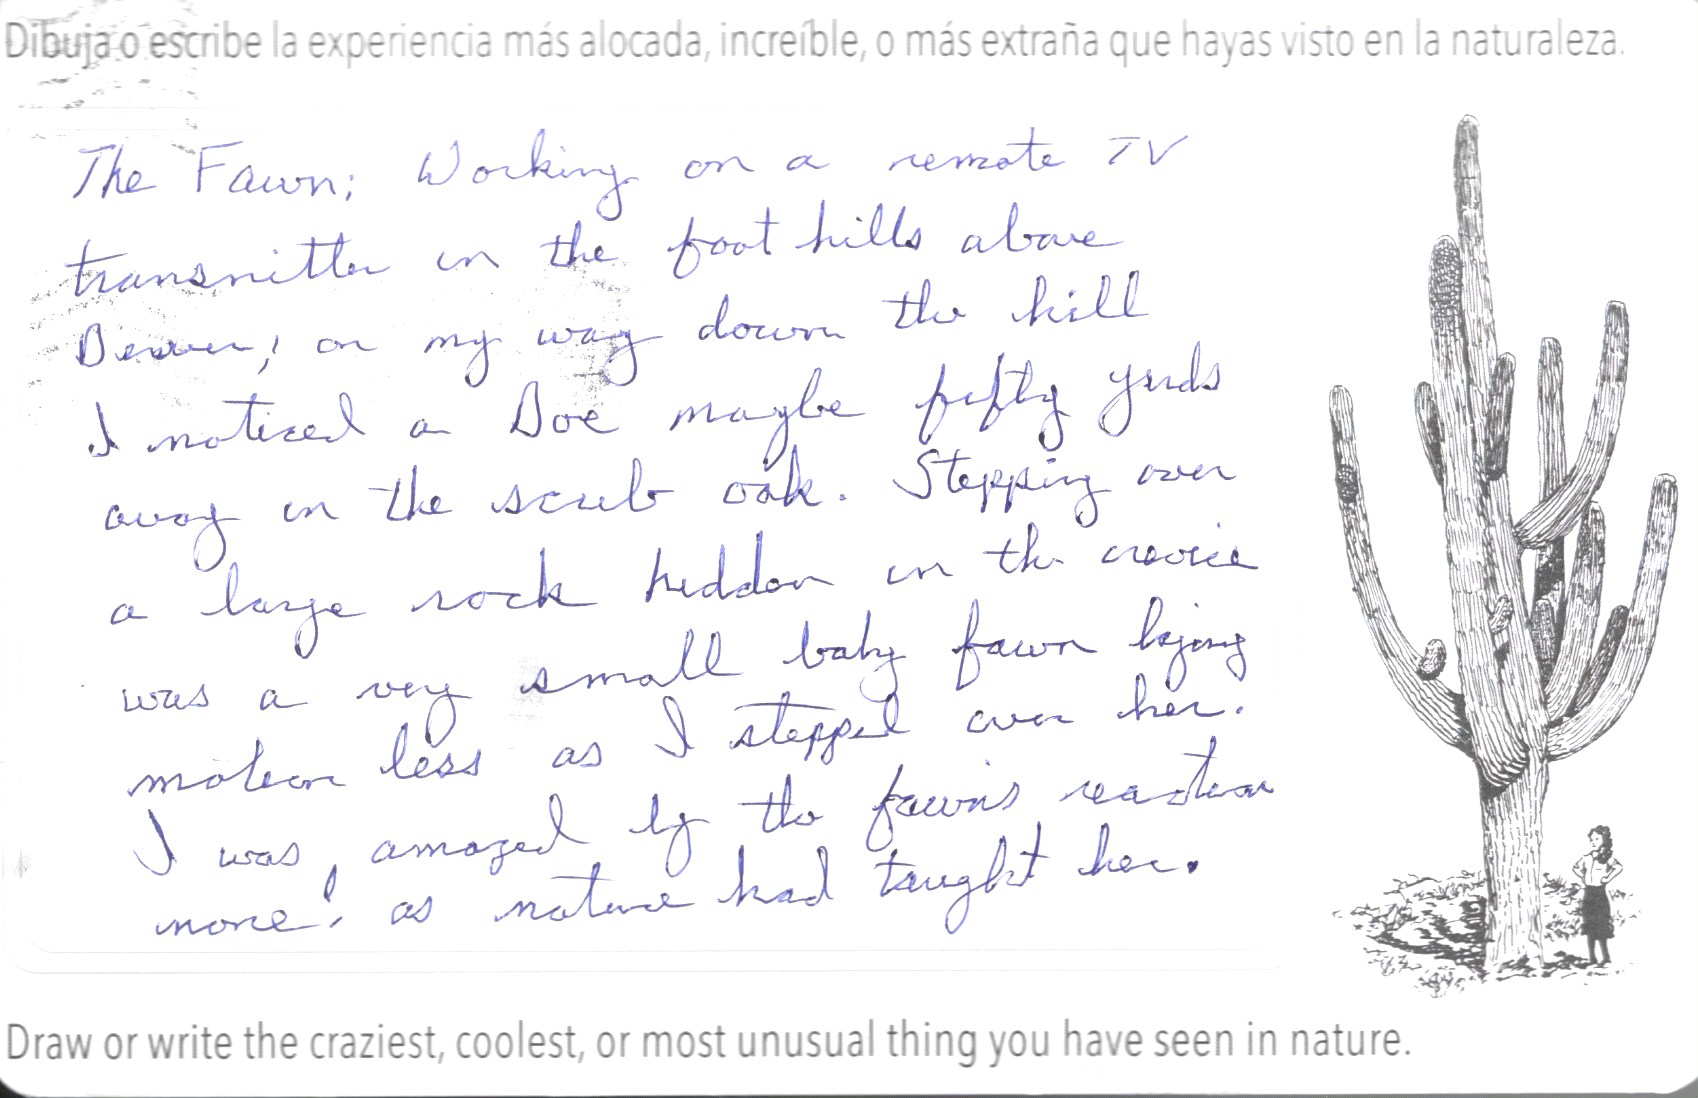 Dibuja o escribe la experiencia más alocada, increíble, o más extraña que hayas visto en la naturaleza.
The Fawn; Working on a remote TV
transmitter in the foot hills above
Denver, on my way down the hill
I noticed a Doe maybe fifty yards
away in the scrub oak. Stepping over
a large rock hidden in the crevice
was a very small baby fawn laying
motion less as I stepped over her.
I was amazed by the fawn's reaction
none! as nature had taught her.
Draw or write the craziest, coolest, or most unusual thing you have seen in nature.